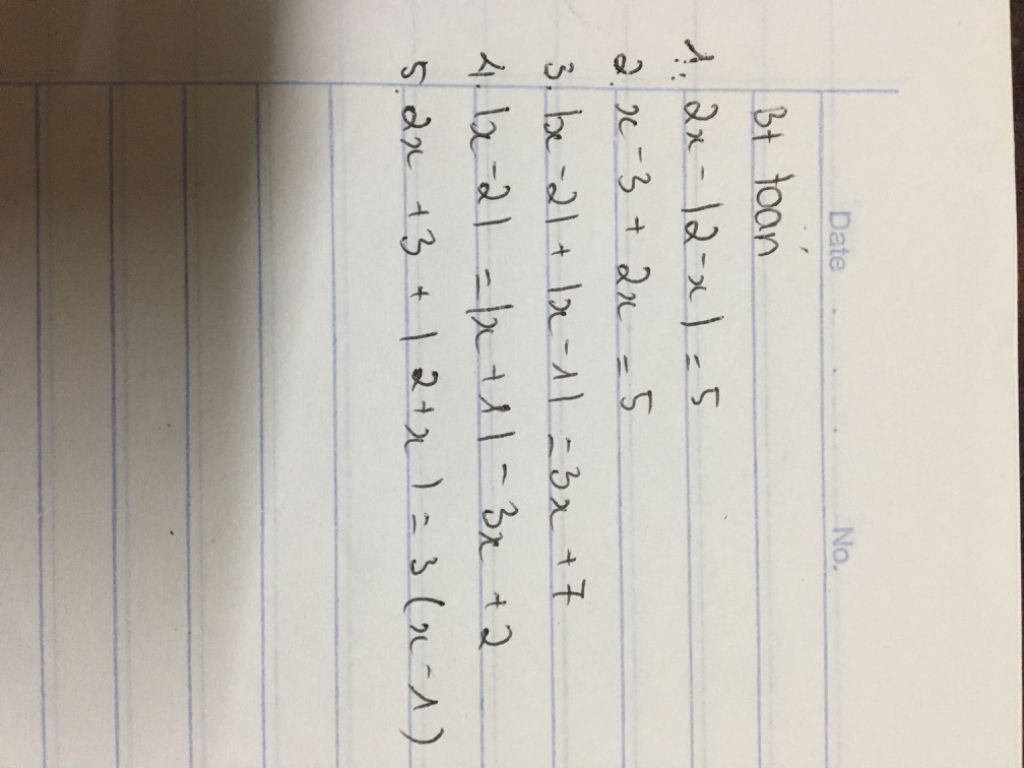 Date No.
Bt toán
1. 2x - |2 - x| = 5
2. x - 3 + 2x = 5
3. |x - 2| + |x - 1| = 3x + 7
4. |x - 2| = |x + 1| - 3x + 2
5. 2x + 3 + |2 + x| = 3(x - 1)